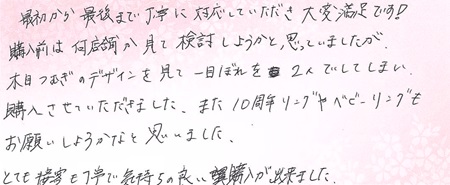 最初から最後まで丁寧に対応していただき大変満足です!
購入前は何店舗か見て検討しようかと思っていましたが、
木目つむぎのデザインを見て一目ぼれを2人でしてしまい、
購入させていただきました。また10周年リングやベビーリングも
お願いしようかなと思いました。
とても接客も丁寧で気持ちの良い購入が出来ました。